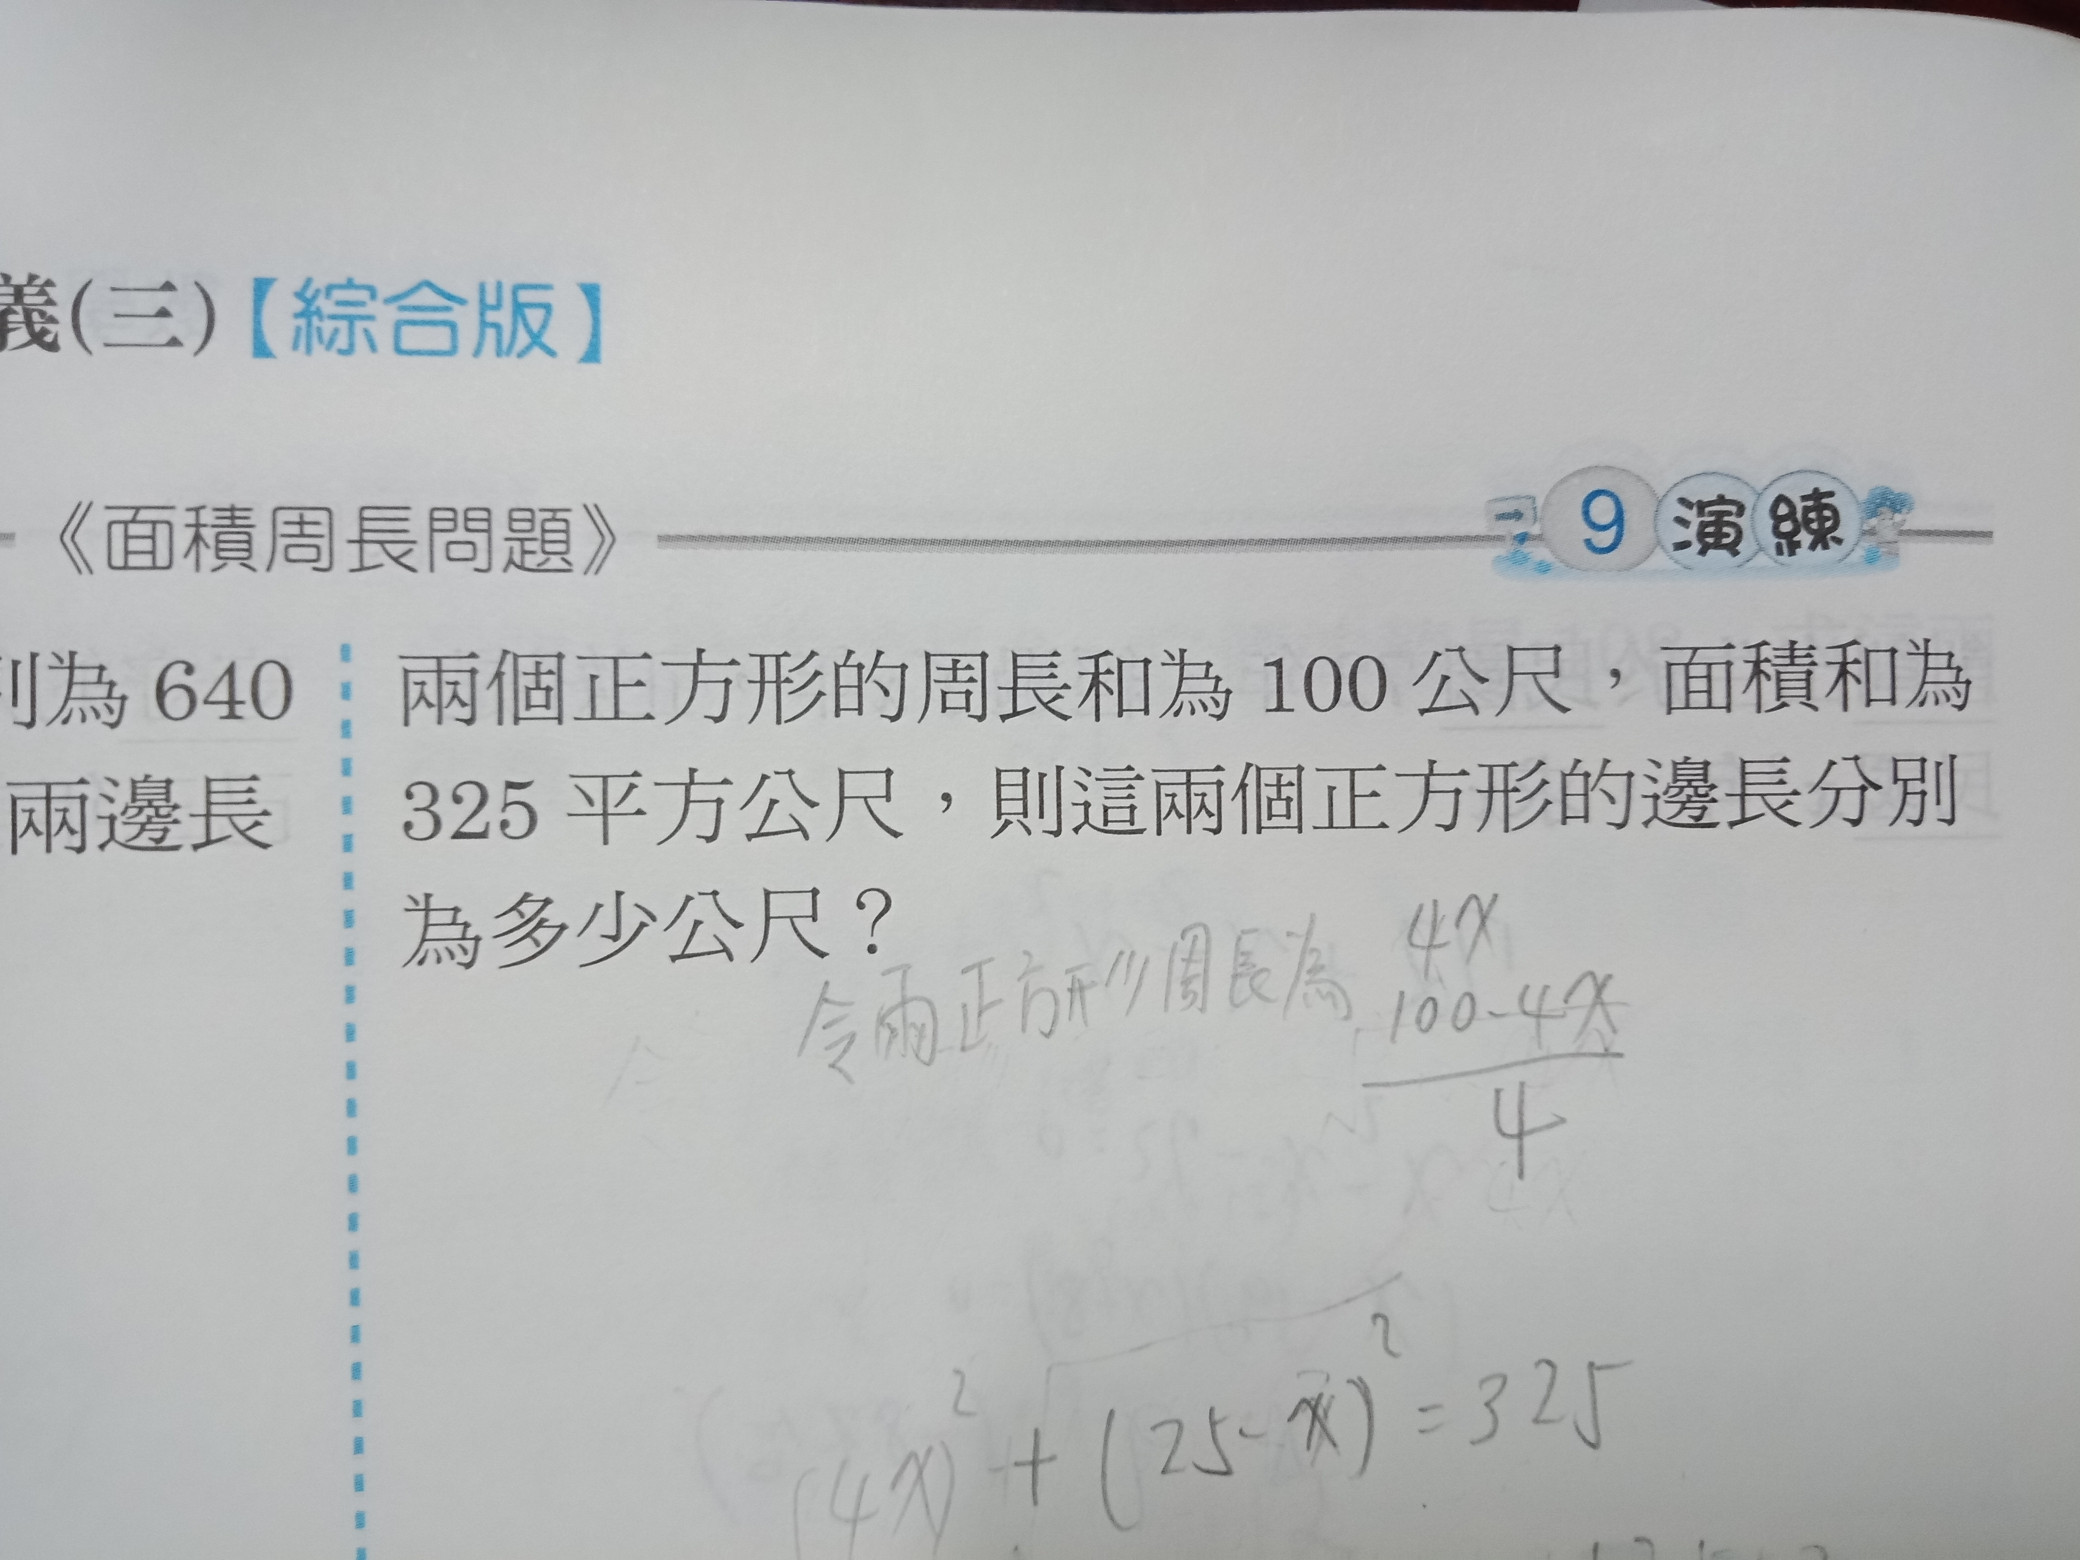 義(三)【綜合版】
《面積周長問題》
9 演練
列為 640
兩邊長
兩個正方形的周長和為 100 公尺，面積和為
325 平方公尺，則這兩個正方形的邊長分別
為多少公尺？
令兩正方形周長為 4x
100-4x
4
(4x)² + (25-x)² = 325